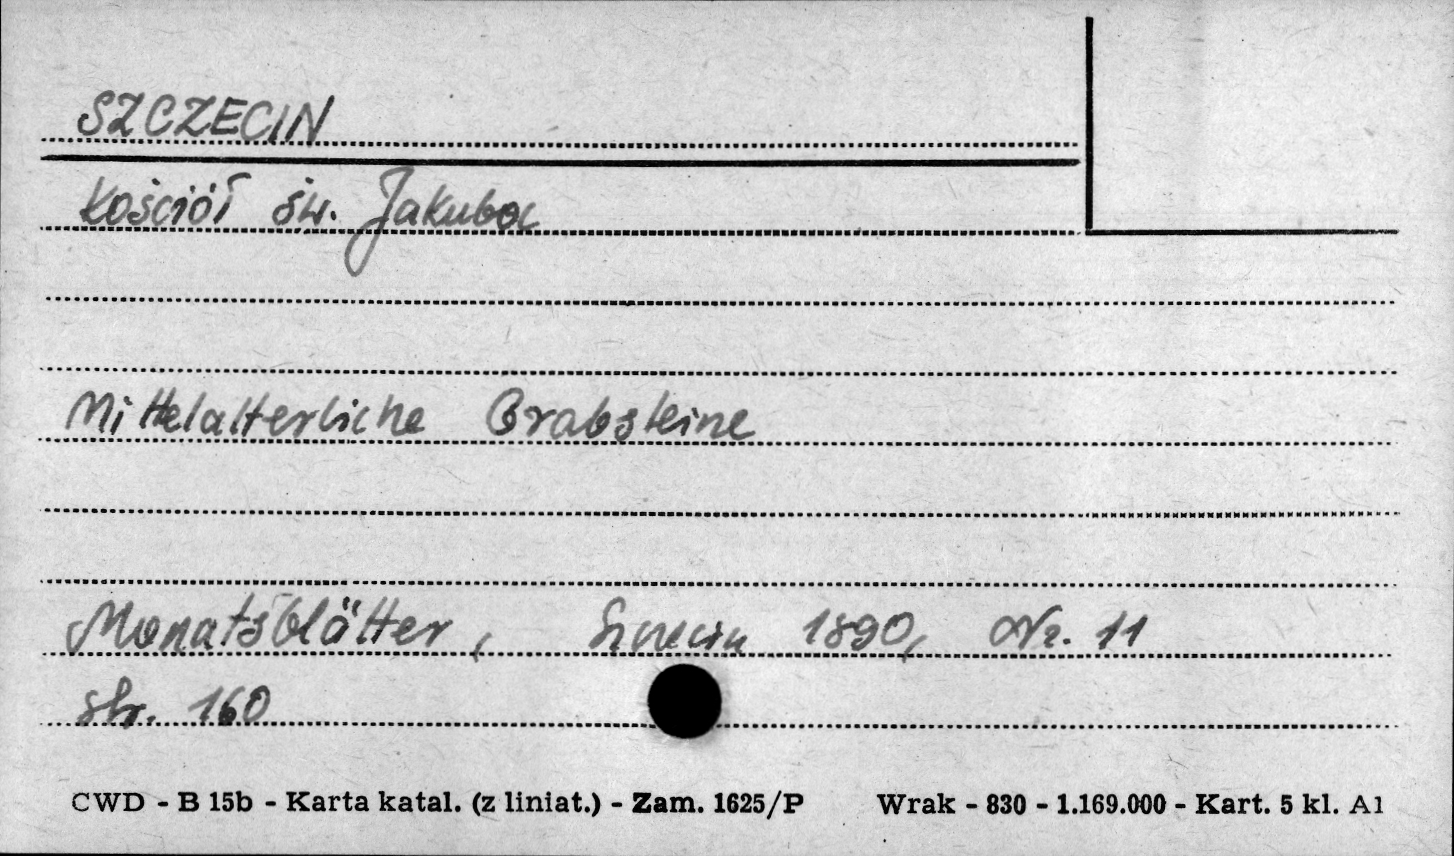 SZCZECIN
Kościół św. Jakuba
Mittelalterliche Grabsteine
Monatsblätter, Szczecin 1890, Nr. 11
str. 160
CWD - B 15b - Karta katal. (z liniat.) - Zam. 1625/P Wrak - 830 - 1.169.000 - Kart. 5 kl. A1